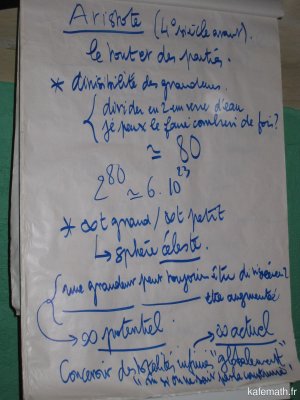 Aristote (4° siècle avant).
le tout et des parties
* divisibilité des grandeurs.
divider en 2 un verre d'eau
je peux le faire combien de fois?
≃ 80
2^80 ≃ 6. 10^23
* sot grand / sot petit
↳ sphère céleste.
une grandeur peut toujours être divisée en 2
être augmenté
∞ potentiel. ∞ actuel
Concevoir des totalités infinies "globalement"
kafemath.fr